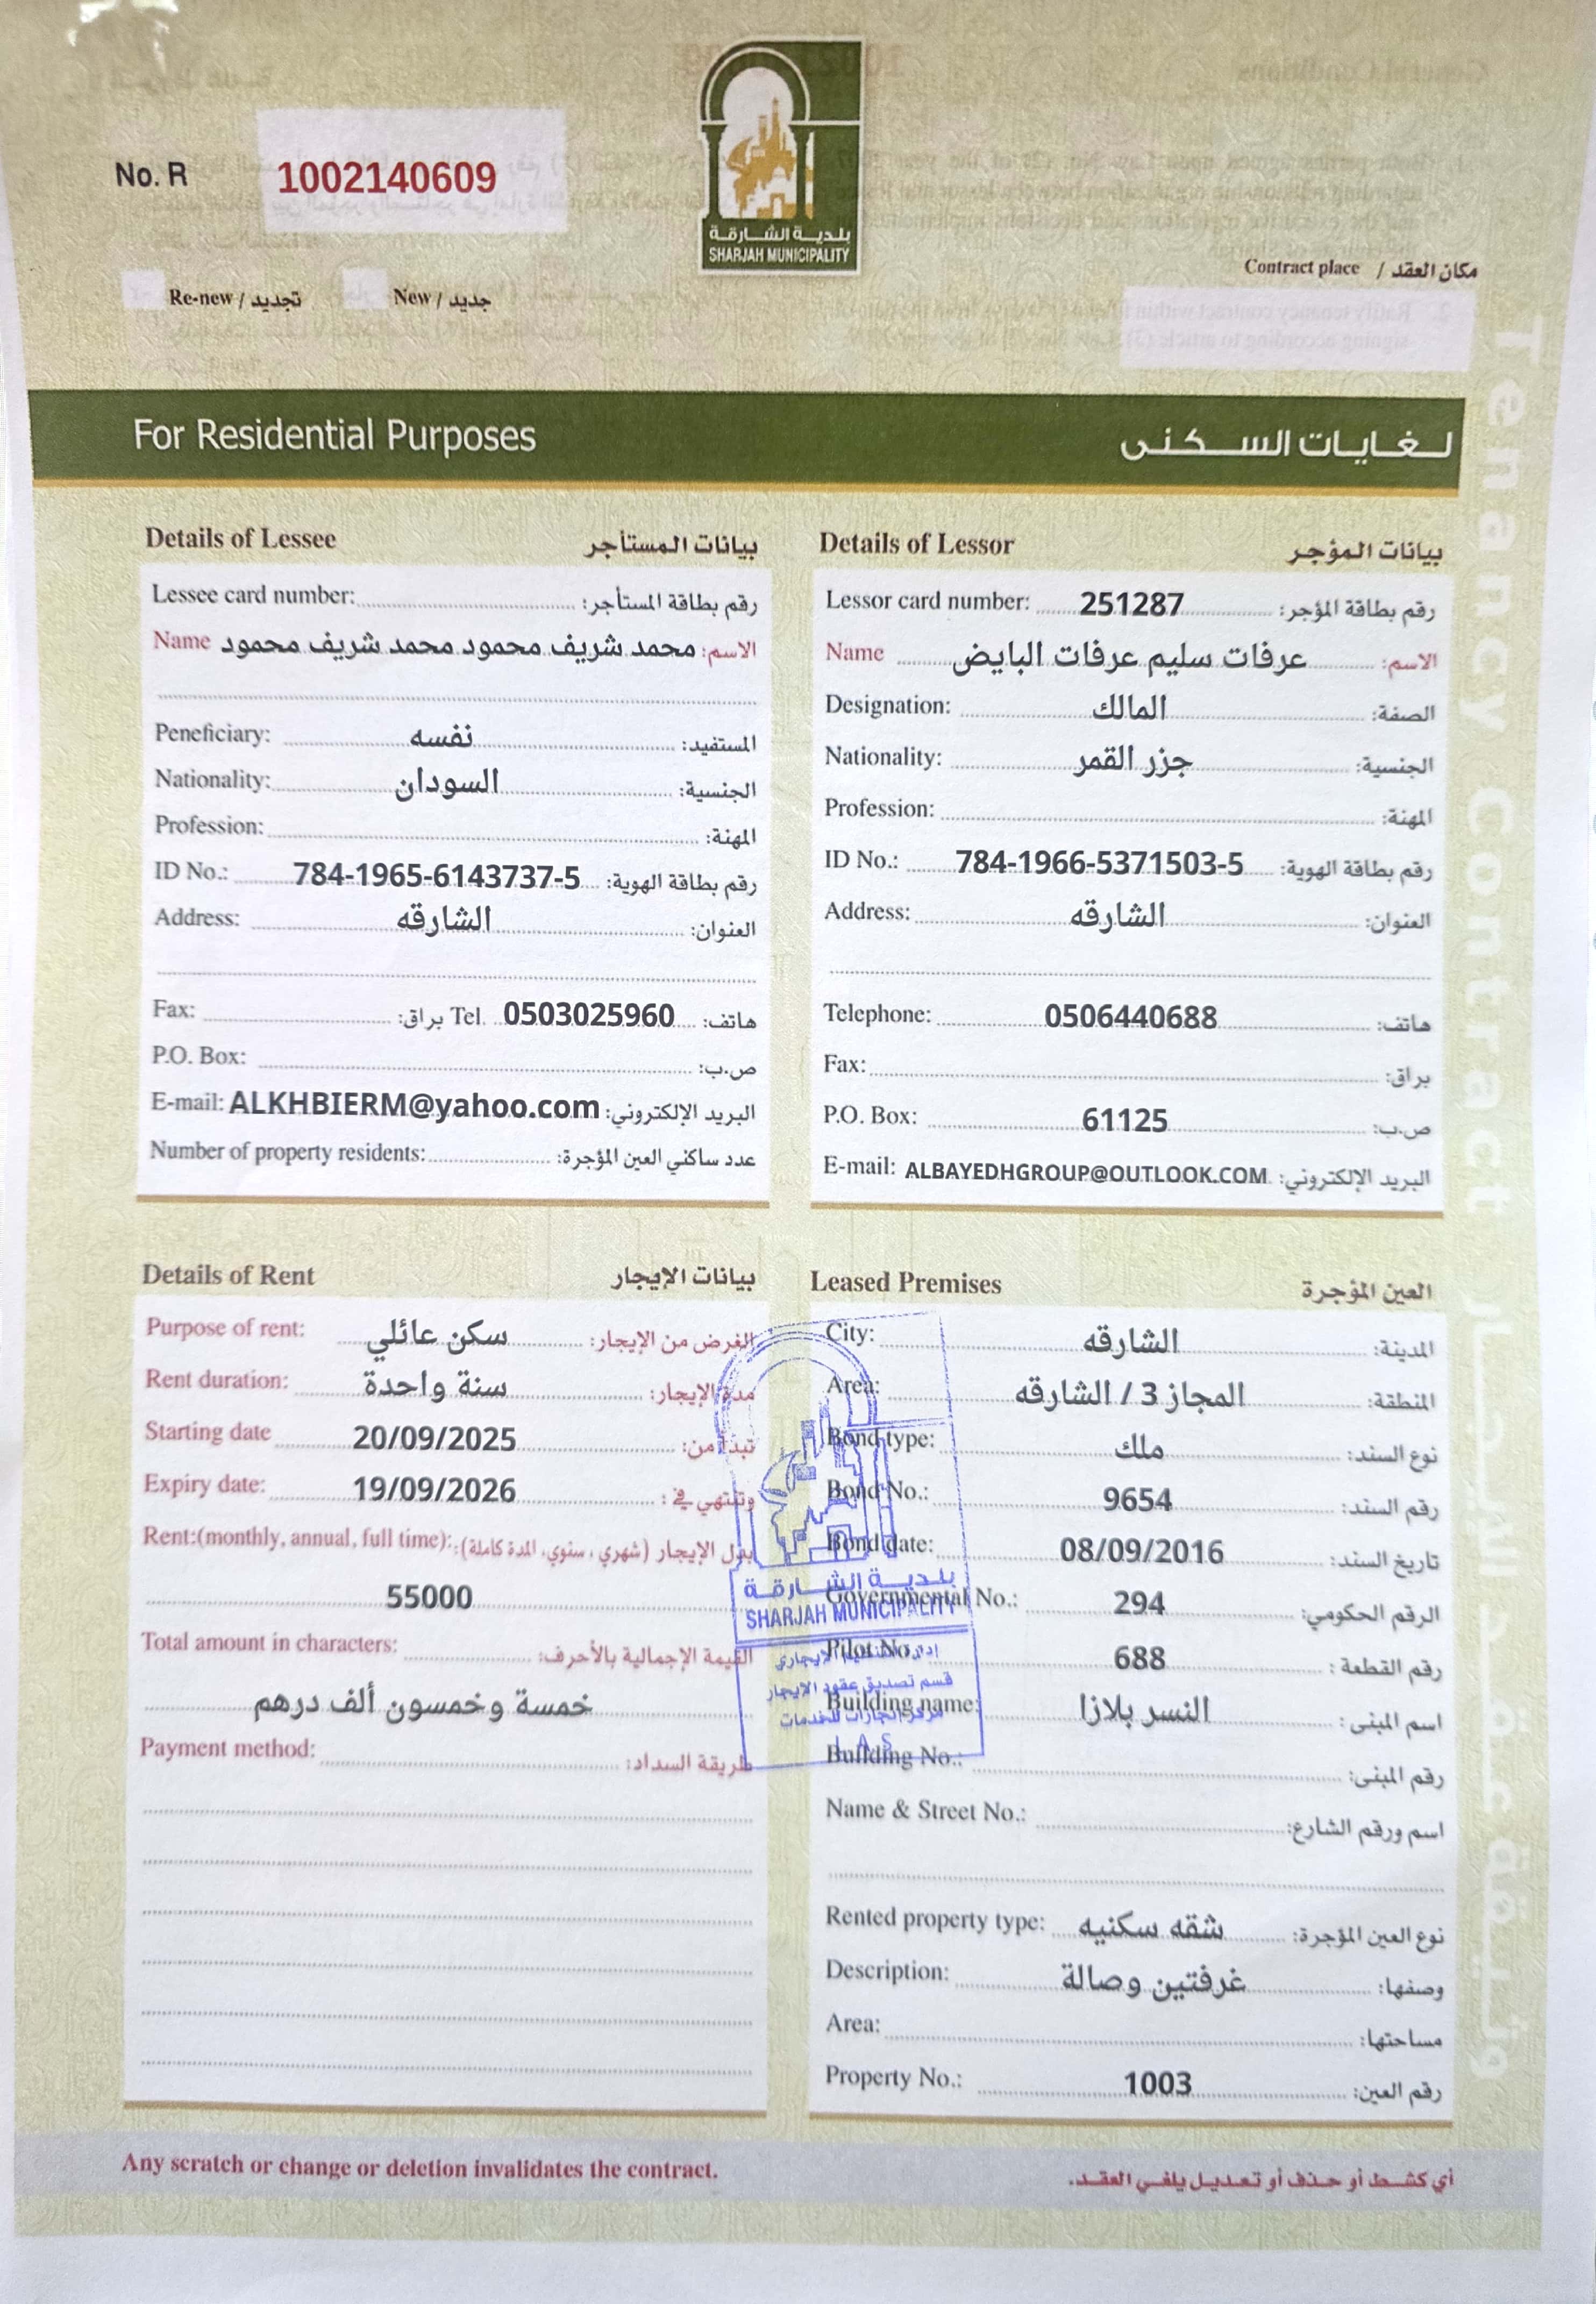 No. R 1002140609
بلدية الشارقة
SHARJAH MUNICIPALITY
Contract place / مكان العقد
Re-new / تجديد
New / جديد
For Residential Purposes
لغايات السكنى
Tenancy Contract
Details of Lessee بيانات المستأجر
Lessee card number: رقم بطاقة المستأجر:
Name الاسم: محمد شريف محمود محمد شريف محمود
Peneficiary: نفسه المستفيد:
Nationality: السودان الجنسية:
Profession: المهنة:
ID No.: 784-1965-6143737-5 رقم بطاقة الهوية:
Address: الشارقه العنوان:
Fax: براق: Tel. 0503025960 هاتف:
P.O. Box: ص.ب:
E-mail: ALKHBIERM@yahoo.com البريد الإلكتروني:
Number of property residents: عدد ساكني العين المؤجرة:
Details of Lessor بيانات المؤجر
Lessor card number: 251287 رقم بطاقة المؤجر:
Name عرفات سليم عرفات البايض الاسم:
Designation: المالك الصفة:
Nationality: جزر القمر الجنسية:
Profession: المهنة:
ID No.: 784-1966-5371503-5 رقم بطاقة الهوية:
Address: الشارقه العنوان:
Telephone: 0506440688 هاتف:
Fax: براق:
P.O. Box: 61125 ص.ب:
E-mail: ALBAYEDHGROUP@OUTLOOK.COM البريد الإلكتروني:
Details of Rent بيانات الإيجار
Purpose of rent: سكن عائلي الغرض من الإيجار:
Rent duration: سنة واحدة مدة الإيجار:
Starting date 20/09/2025 تبدأ من:
Expiry date: 19/09/2026 وتنتهي في:
Rent:(monthly, annual, full time): بدل الإيجار (شهري، سنوي، المدة كاملة):
55000
Total amount in characters: القيمة الإجمالية بالأحرف:
خمسة وخمسون ألف درهم
Payment method: طريقة السداد:
Leased Premises العين المؤجرة
City: الشارقه المدينة:
Area: المجاز 3 / الشارقه المنطقة:
Bond type: ملك نوع السند:
Bond No.: 9654 رقم السند:
Bond date: 08/09/2016 تاريخ السند:
Governmental No.: 294 الرقم الحكومي:
Pilot No. 688 رقم القطعة:
Building name: النسر بلازا اسم المبنى:
Building No.: رقم المبنى:
Name & Street No.: اسم ورقم الشارع:
Rented property type: شقه سكنيه نوع العين المؤجرة:
Description: غرفتين وصالة وصفها:
Area: مساحتها:
Property No.: 1003 رقم العين:
بلدية الشارقة
SHARJAH MUNICIPALITY
قسم تصديق عقود الايجار
Any scratch or change or deletion invalidates the contract.
أي كشط أو حذف أو تعديل يلغي العقد.